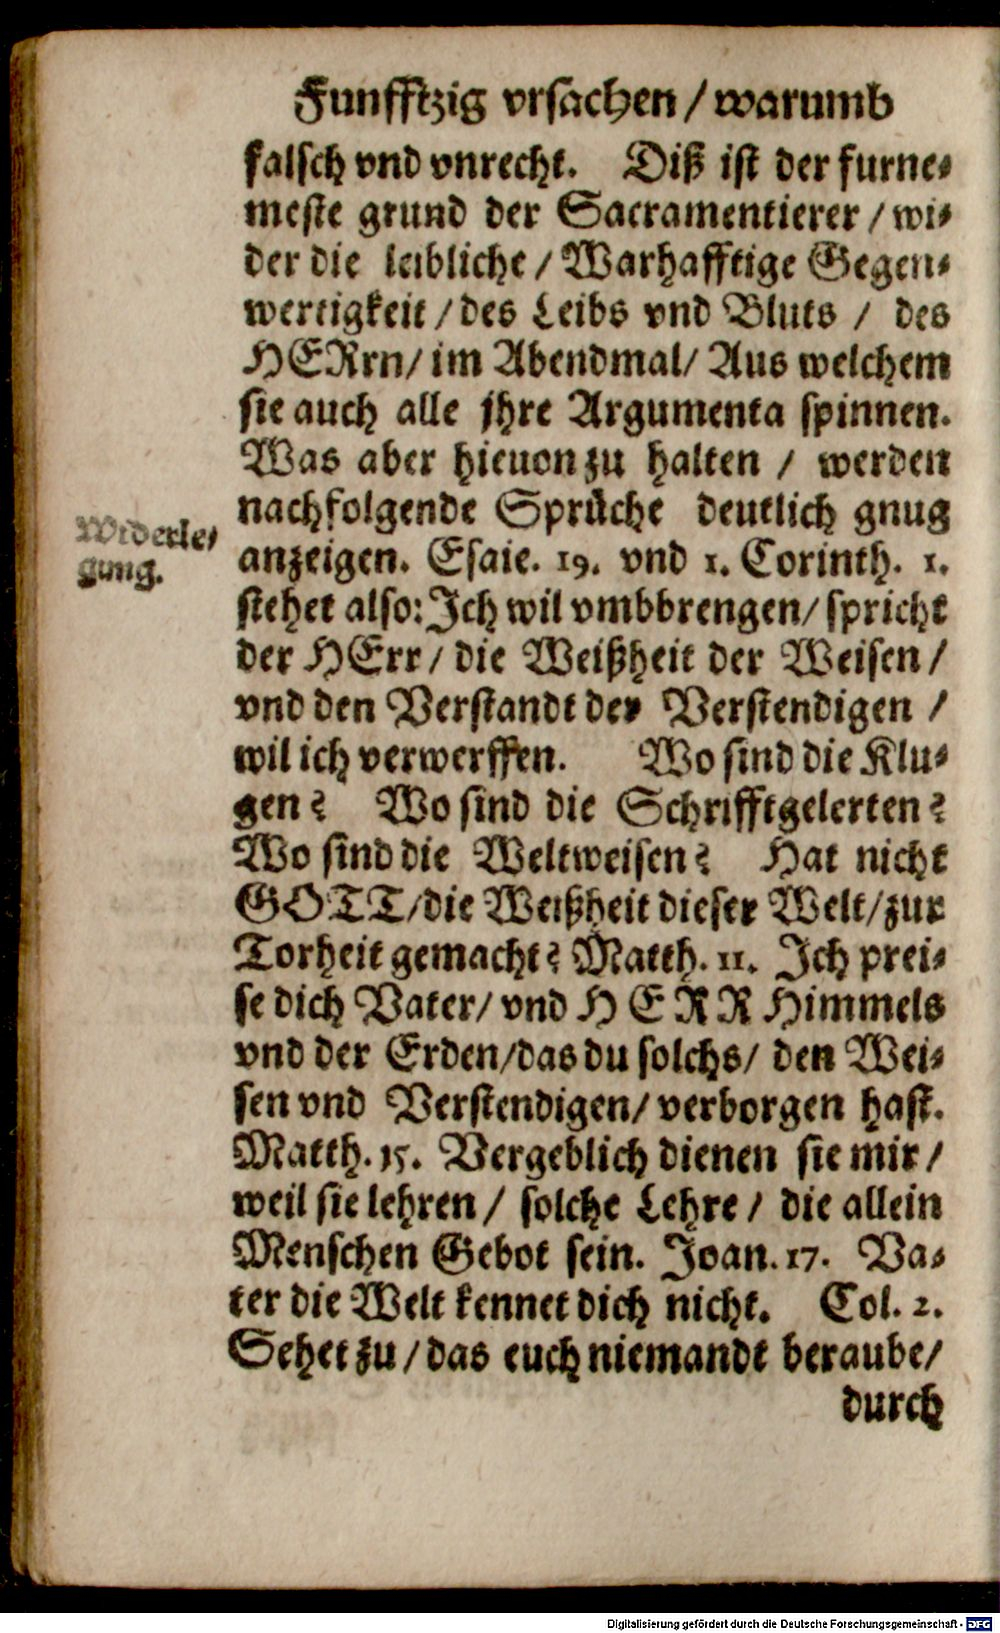 Funfftzig vrsachen / warumb
falsch vnd vnrecht. Diß ist der furne-
meste grund der Sacramentierer / wi-
der die leibliche / Warhafftige Gegen-
wertigkeit / des Leibs vnd Bluts / des
HERrn / im Abendmal / Aus welchem
sie auch alle jhre Argumenta spinnen.
Was aber hieuon zu halten / werden
nachfolgende Sprüche deutlich gnug
Widerle-
gung.
anzeigen. Esaie. 19. vnd 1. Corinth. 1.
stehet also: Ich wil vmbbrengen / spricht
der HErr / die Weißheit der Weisen /
vnd den Verstandt der Verstendigen /
wil ich verwerffen. Wo sind die Klu-
gen? Wo sind die Schrifftgelerten?
Wo sind die Weltweisen? Hat nicht
GOTT / die Weißheit dieser Welt / zur
Torheit gemacht? Matth. 11. Ich prei-
se dich Vater / vnd HERR Himmels
vnd der Erden / das du solchs / den Wei-
sen vnd Verstendigen / verborgen hast.
Matth. 15. Vergeblich dienen sie mir /
weil sie lehren / solche Lehre / die allein
Menschen Gebot sein. Joan. 17. Va-
ter die Welt kennet dich nicht. Col. 2.
Sehet zu / das euch niemandt beraube /
durch
Digitalisierung gefördert durch die Deutsche Forschungsgemeinschaft - DFG